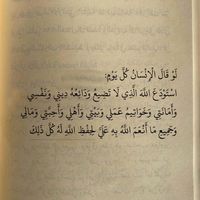 لَوْ قَالَ الْإِنْسَانُ كُلَّ يَوْمٍ:
اسْتَوْدَعَ اللهَ الَّذِي لَا تَضِيعُ وَدَائِعُهُ دِينِي وَنَفْسِي
وَأَمَانَتِي وَخَوَاتِيمَ عَمَلِي وَبَيْتِي وَأَهْلِي وَأَحِبَّتِي وَمَالِي
وَجَمِيعَ مَا أَنْعَمَ اللهُ بِهِ عَلَيَّ لِحِفْظِ اللهِ لَهُ كُلَّ ذَلِكَ